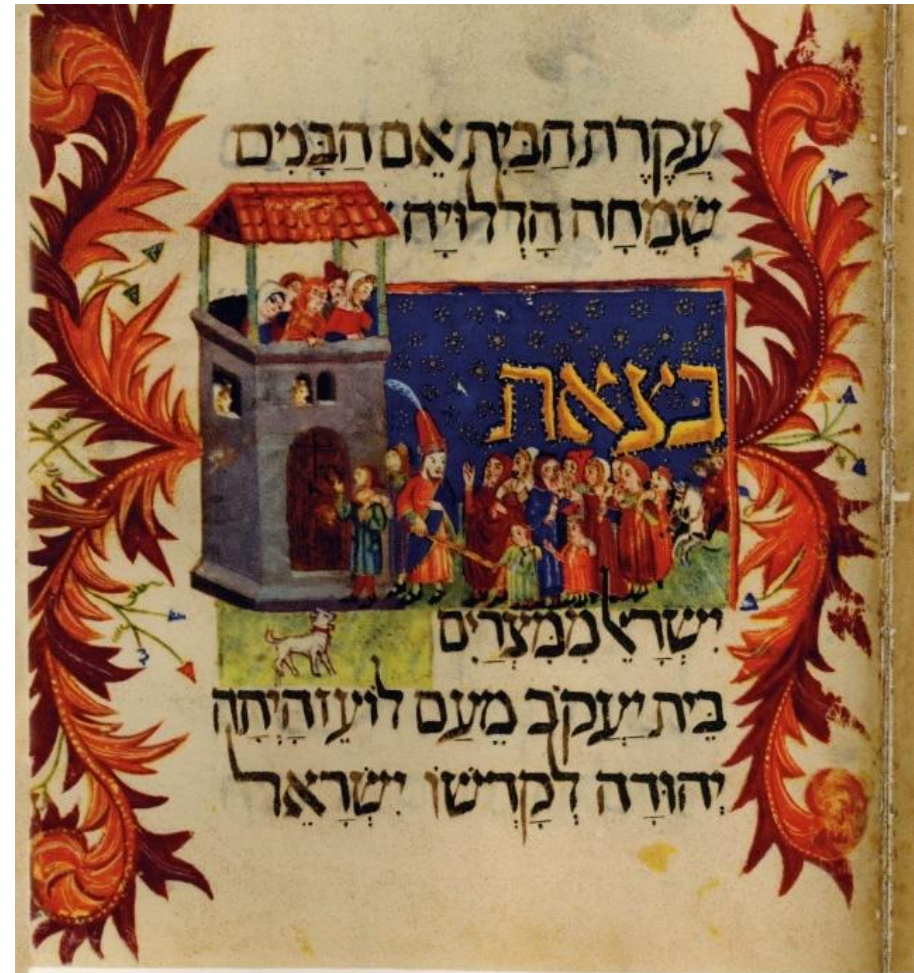 עֲקֶרֶת הַבַּיִת אֵם הַבָּנִים
שְׂמֵחָה הַלְלוּיָהּ׃
בצאת
יִשְׂרָאֵל מִמִּצְרַיִם
בֵּית יַעֲקֹב מֵעַם לוֹעֵז הָיְתָה
יְהוּדָה לְקָדְשׁוֹ יִשְׂרָאֵל